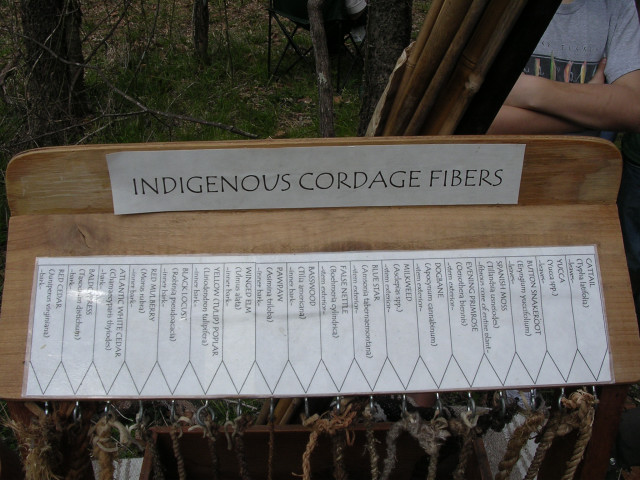 INDIGENOUS CORDAGE FIBERS
RED CEDAR
(Juniperus virginiana)
-bark-
BALD CYPRESS
(Taxodium distichum)
-bark-
ATLANTIC WHITE CEDAR
(Chamaecyparis thyoides)
-bark-
RED MULBERRY
(Morus rubra)
-inner bark-
BLACK LOCUST
(Robinia pseudoacacia)
-inner bark-
YELLOW (TULIP) POPLAR
(Liriodendron tulipifera)
-inner bark-
WINGED ELM
(Ulmus alata)
-inner bark-
PAWPAW
(Asimina triloba)
-inner bark-
BASSWOOD
(Tilia americana)
-inner bark-
FALSE NETTLE
(Boehmeria cylindrica)
-stem exterior-
BLUE STAR
(Amsonia tabernaemontana)
-stem exterior-
MILKWEED
(Asclepias spp.)
-stem exterior-
DOGBANE
(Apocynum cannabinum)
-stem exterior-
EVENING PRIMROSE
(Oenothera biennis)
-stem exterior-
SPANISH MOSS
(Tillandsia usneoides)
BUTTON SNAKEROOT
(Eryngium yuccifolium)
-leaves-
YUCCA
(Yucca spp.)
-leaves-
CATTAIL
(Typha latifolia)
-leaves-